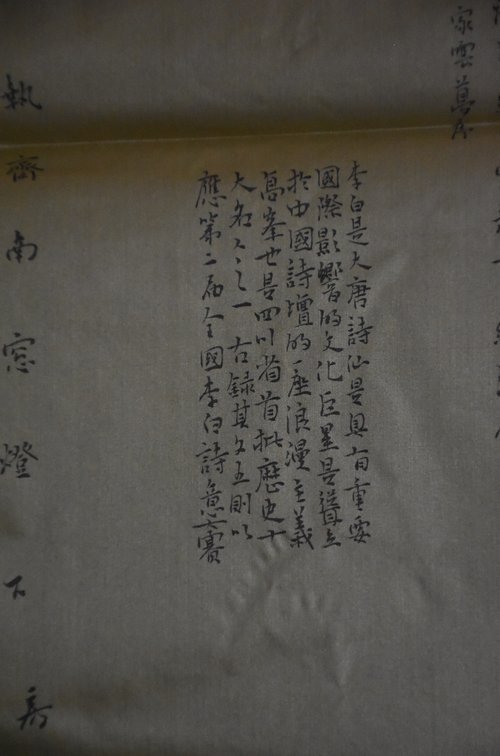 家雲萬尺
李白是大唐詩仙是具有重要
國際影響的文化巨星是聳立
於中國詩壇的一座浪漫主義
高峯也是四川省首批歷史十
大名人之一古錄其文五則以
應第二届全國李白詩意賽
執齋南窓燈下